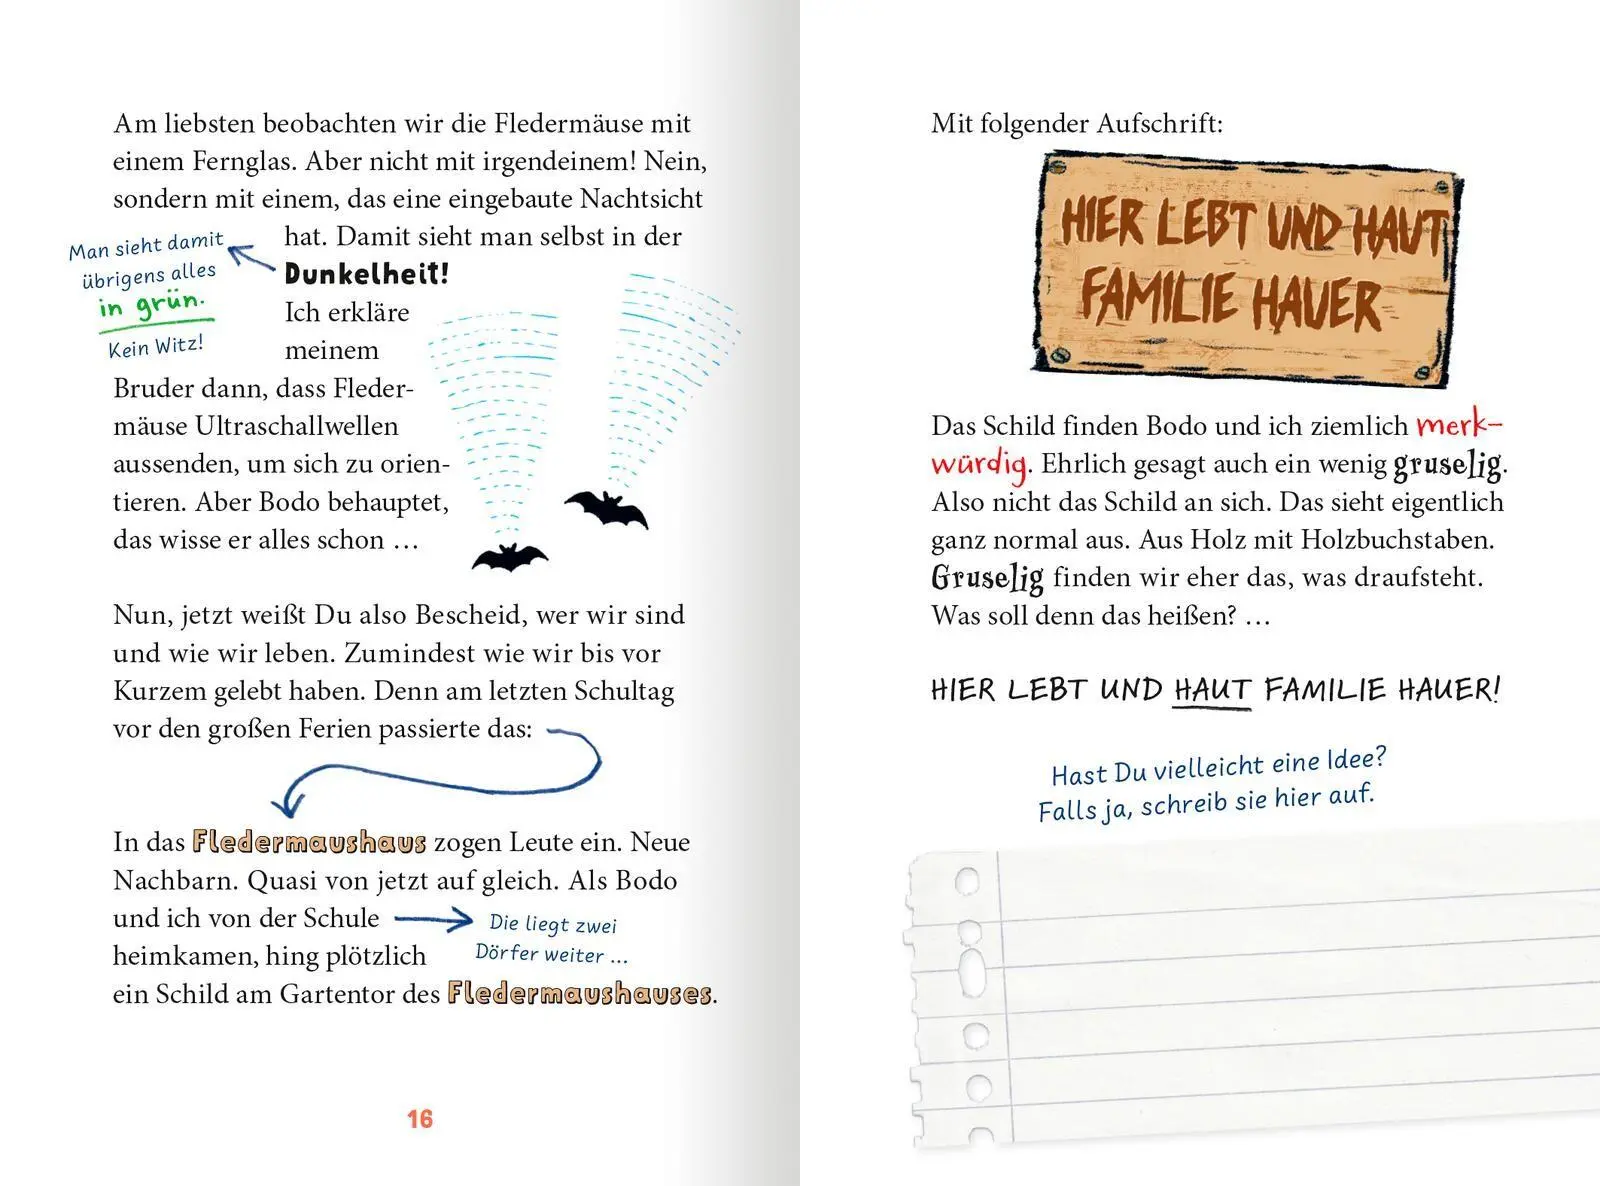 Am liebsten beobachten wir die Fledermäuse mit
einem Fernglas. Aber nicht mit irgendeinem! Nein,
sondern mit einem, das eine eingebaute Nachtsicht
hat. Damit sieht man selbst in der
Dunkelheit!
Man sieht damit
übrigens alles
in grün.
Kein Witz!
Ich erkläre
meinem
Bruder dann, dass Fleder-
mäuse Ultraschallwellen
aussenden, um sich zu orien-
tieren. Aber Bodo behauptet,
das wisse er alles schon …
Nun, jetzt weißt Du also Bescheid, wer wir sind
und wie wir leben. Zumindest wie wir bis vor
Kurzem gelebt haben. Denn am letzten Schultag
vor den großen Ferien passierte das:
In das Fledermaushaus zogen Leute ein. Neue
Nachbarn. Quasi von jetzt auf gleich. Als Bodo
und ich von der Schule
Die liegt zwei
Dörfer weiter ...
heimkamen, hing plötzlich
ein Schild am Gartentor des Fledermaushauses.
16
Mit folgender Aufschrift:
HIER LEBT UND HAUT
FAMILIE HAUER
Das Schild finden Bodo und ich ziemlich merk-
würdig. Ehrlich gesagt auch ein wenig gruselig.
Also nicht das Schild an sich. Das sieht eigentlich
ganz normal aus. Aus Holz mit Holzbuchstaben.
Gruselig finden wir eher das, was draufsteht.
Was soll denn das heißen? …
HIER LEBT UND HAUT FAMILIE HAUER!
Hast Du vielleicht eine Idee?
Falls ja, schreib sie hier auf.